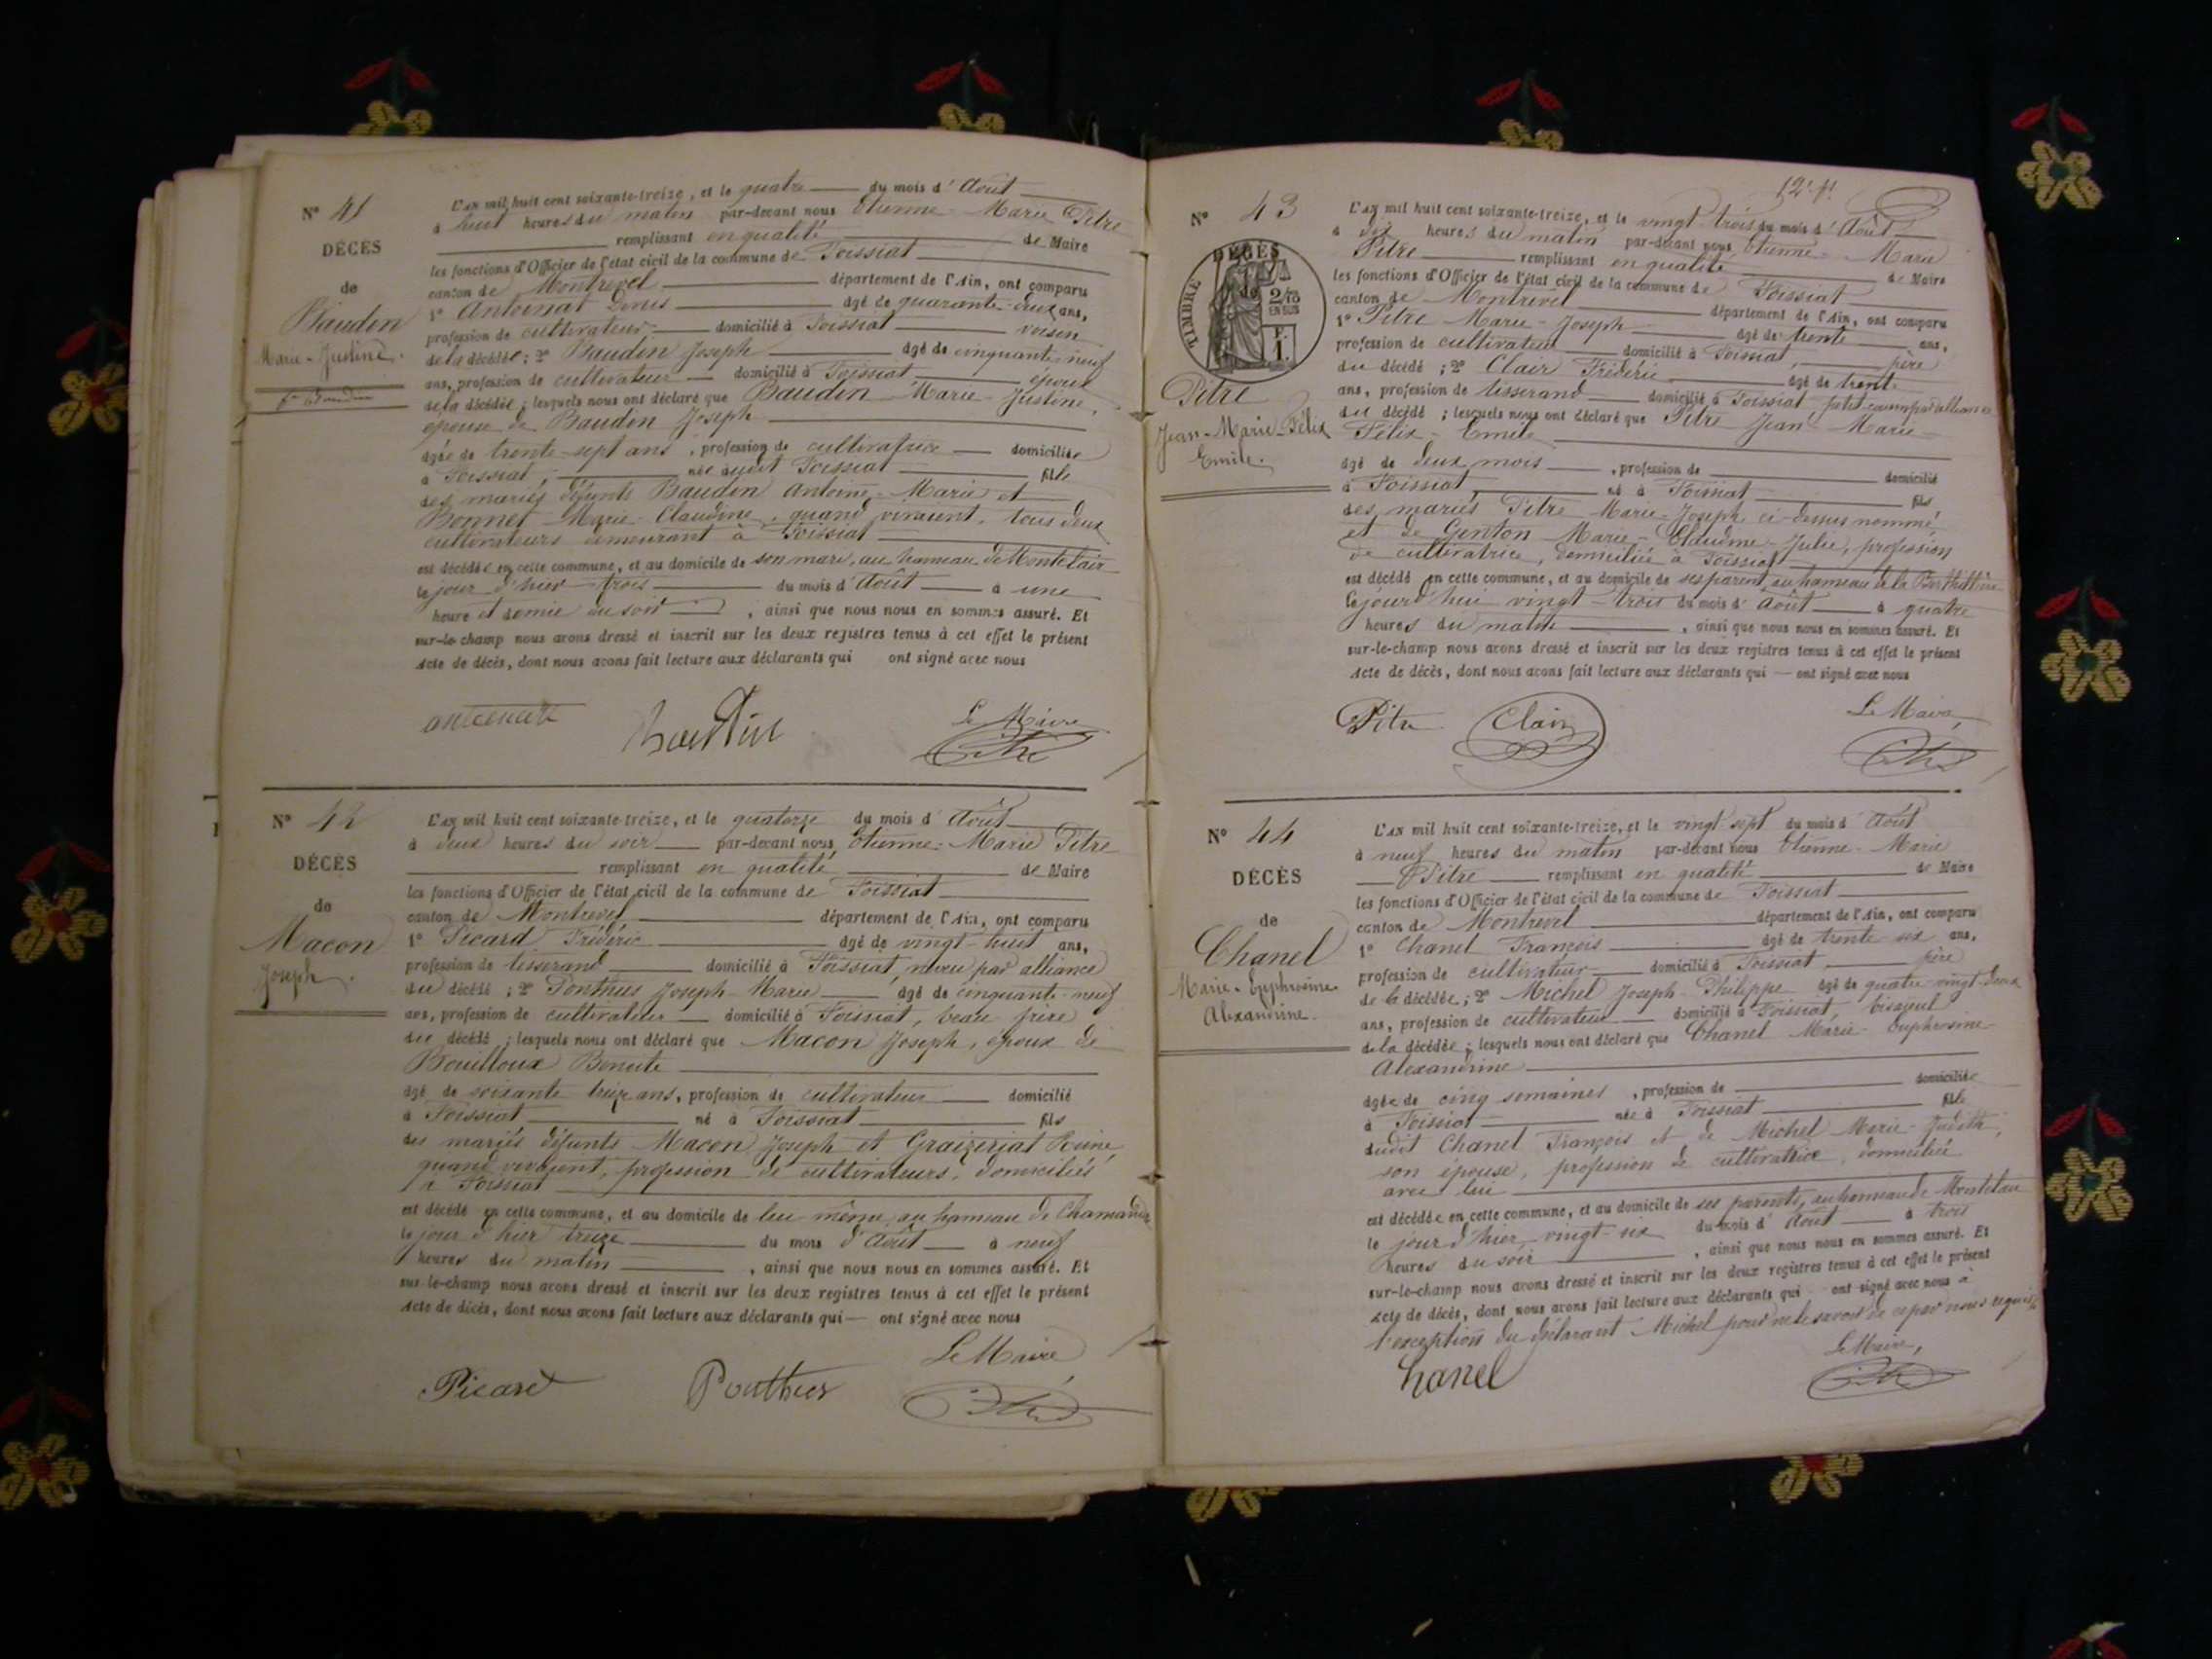 N° 41
DÉCÈS
de
Baudin
Marie-Justine.
L'AN mil huit cent soixante-treize, et le quatre du mois d'Août
à huit heures du matin par-devant nous Etienne-Marie Pitre
remplissant en qualité de Maire
les fonctions d'Officier de l'état civil de la commune de Foissiat
canton de Montrevel département de l'Ain, ont comparu
1° Antoinat Denis âgé de quarante-deux ans,
profession de cultivateur domicilié à Foissiat voisin
de la décédée; 2° Baudin Joseph âgé de cinquante neuf
ans, profession de cultivateur domicilié à Foissiat époux
de la décédée; lesquels nous ont déclaré que Baudin Marie-Justine,
épouse de Baudin Joseph
âgée de trente-sept ans, profession de cultivatrice domiciliée
à Foissiat, née audit Foissiat fille
des mariés défunts Baudin Antoine-Marie et
Bonnet Marie-Claudine, quand vivaient, tous deux
cultivateurs demeurant à Foissiat
est décédée en cette commune, et au domicile de son mari, au hameau de Montclair
le jour d'hier trois du mois d'Août à une
heure et demie du soir, ainsi que nous nous en sommes assuré. Et
sur-le-champ nous avons dressé et inscrit sur les deux registres tenus à cet effet le présent
Acte de décès, dont nous avons fait lecture aux déclarants qui ont signé avec nous
Baudin
Le Maire
Pitre
N° 42
DÉCÈS
de
Macon
Joseph.
L'AN mil huit cent soixante-treize, et le quatorze du mois d'Août
à deux heures du soir par-devant nous Etienne-Marie Pitre
remplissant en qualité de Maire
les fonctions d'Officier de l'état civil de la commune de Foissiat
canton de Montrevel département de l'Ain, ont comparu
1° Picard Frédéric âgé de vingt-huit ans,
profession de tisserand domicilié à Foissiat, neveu par alliance
du décédé; 2° Ponthus Joseph-Marie âgé de cinquante-neuf
ans, profession de cultivateur domicilié à Foissiat, beau frère
du décédé; lesquels nous ont déclaré que Macon Joseph, époux de
Bouilloux Benoite
âgé de soixante treize ans, profession de cultivateur domicilié
à Foissiat né à Foissiat fils
des mariés défunts Macon Joseph et Graizeriat Reine,
quand vivaient, profession de cultivateurs, domiciliés
à Foissiat
est décédé en cette commune, et au domicile de lui même, au hameau de
le jour d'hier treize du mois d'Août à neuf
heures du matin, ainsi que nous nous en sommes assuré. Et
sur-le-champ nous avons dressé et inscrit sur les deux registres tenus à cet effet le présent
Acte de décès, dont nous avons fait lecture aux déclarants qui — ont signé avec nous
Le Maire
Picard Ponthus Pitre
N° 43
DÉCÈS
de
TIMBRE
2/10
EN SUS
F.
1.
Pitre
Jean-Marie-Félix
Emile.
L'AN mil huit cent soixante-treize, et le vingt-trois du mois d'Août
à dix heures du matin par-devant nous Etienne-Marie
Pitre remplissant en qualité de Maire
les fonctions d'Officier de l'état civil de la commune de Foissiat
canton de Montrevel département de l'Ain, ont comparu
1° Pitre Marie-Joseph âgé de trente ans,
profession de cultivateur domicilié à Foissiat, père
du décédé; 2° Clair Frédéric âgé de trente
ans, profession de tisserand domicilié à Foissiat, petit-cousin par alliance
du décédé; lesquels nous ont déclaré que Pitre Jean-Marie-
Félix-Emile
âgé de deux mois, profession de domicilié
à Foissiat né à Foissiat fils
des mariés Pitre Marie-Joseph ci-dessus nommé,
et de Genton Marie-Claudine-Julie, profession
de cultivatrice, domiciliée à Foissiat
est décédé en cette commune, et au domicile de ses parents, au hameau de la
le jourd'hui vingt-trois du mois d'Août à quatre
heures du matin, ainsi que nous nous en sommes assuré. Et
sur-le-champ nous avons dressé et inscrit sur les deux registres tenus à cet effet le présent
Acte de décès, dont nous avons fait lecture aux déclarants qui — ont signé avec nous
Le Maire,
Pitre Clair Pitre
N° 44
DÉCÈS
de
Chanel
Marie-Euphrosine
Alexandrine.
L'AN mil huit cent soixante-treize, et le vingt sept du mois d'Août
à neuf heures du matin par-devant nous Etienne-Marie
Pitre remplissant en qualité de Maire
les fonctions d'Officier de l'état civil de la commune de Foissiat
canton de Montrevel département de l'Ain, ont comparu
1° Chanel François âgé de trente six ans,
profession de cultivateur domicilié à Foissiat père
de la décédée; 2° Michel Joseph-Philippe âgé de quatre-vingt-deux
ans, profession de cultivateur domicilié à Foissiat, bisaïeul
de la décédée; lesquels nous ont déclaré que Chanel Marie-Euphrosine-
Alexandrine
âgée de cinq semaines, profession de domiciliée
à Foissiat née à Foissiat fille
dudit Chanel François et de Michel Marie-Judith,
son épouse, profession de cultivatrice, domiciliée
avec lui
est décédée en cette commune, et au domicile de ses parents, au hameau de
le jour d'hier vingt-six du mois d'Août à trois
heures du soir, ainsi que nous nous en sommes assuré. Et
sur-le-champ nous avons dressé et inscrit sur les deux registres tenus à cet effet le présent
Acte de décès, dont nous avons fait lecture aux déclarants qui ont signé avec nous à
l'exception du déclarant Michel pour ne le savoir de ce par nous requis
Le Maire,
Chanel Pitre